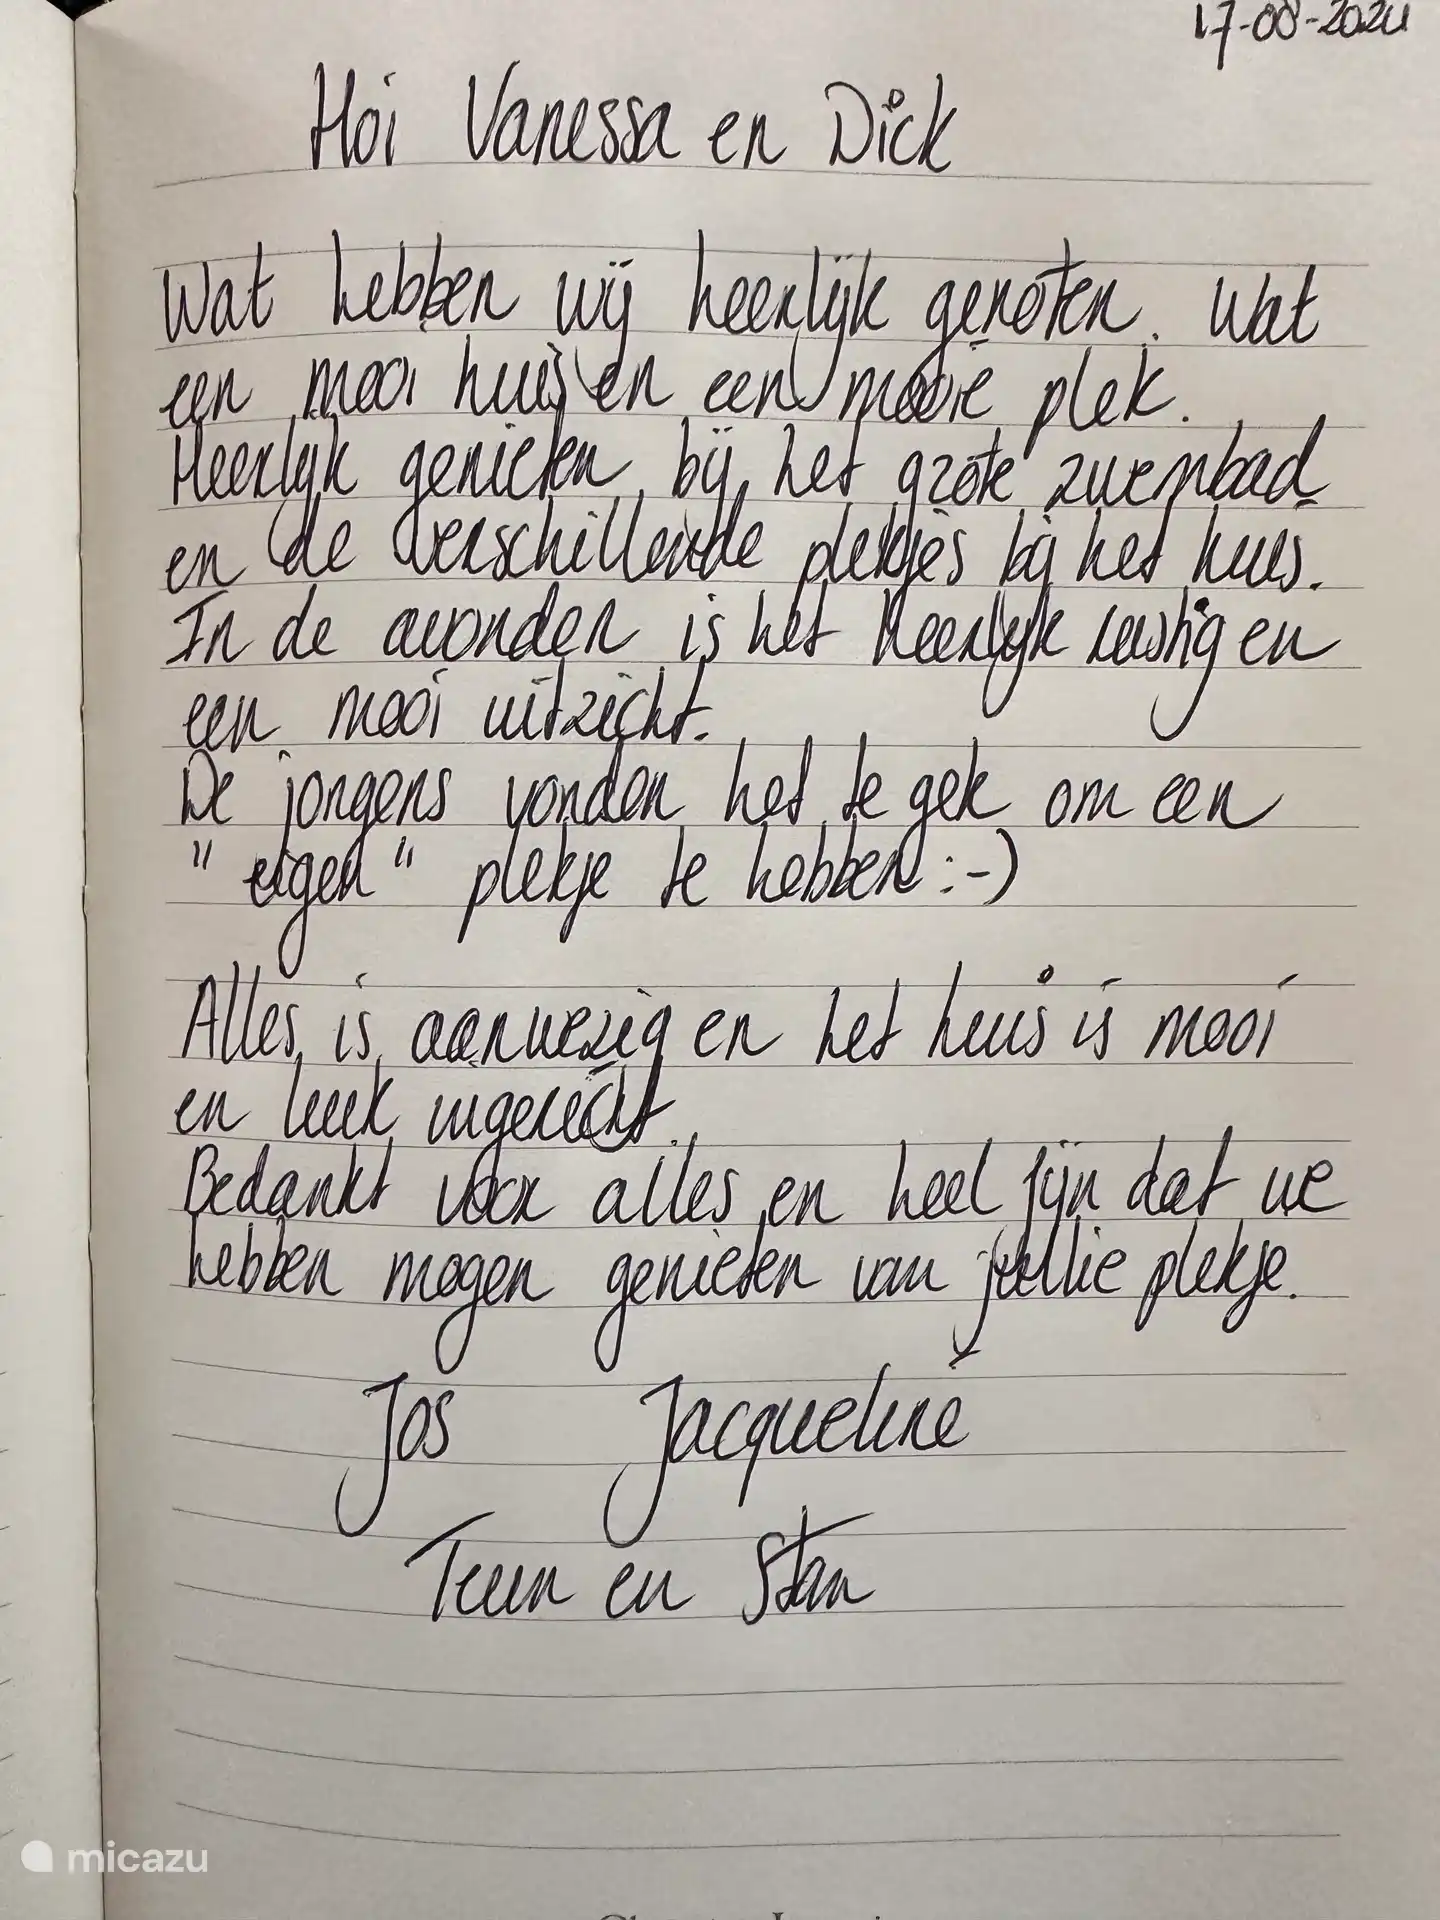 17-08-2024
Hoi Vanessa en Dick
Wat hebben wij heerlijk genoten. Wat
een mooi huis en een mooie plek.
Heerlijk genieten bij het grote zwembad
en de verschillende plekjes bij het huis.
In de avonden is het heerlijk rustig en
een mooi uitzicht.
De jongens vonden het te gek om een
"eigen" plekje te hebben :-)
Alles is aanwezig en het huis is mooi
en leuk ingericht.
Bedankt voor alles en heel fijn dat we
hebben mogen genieten van jullie plekje.
Jos Jacqueline
Teun en Stan
micazu